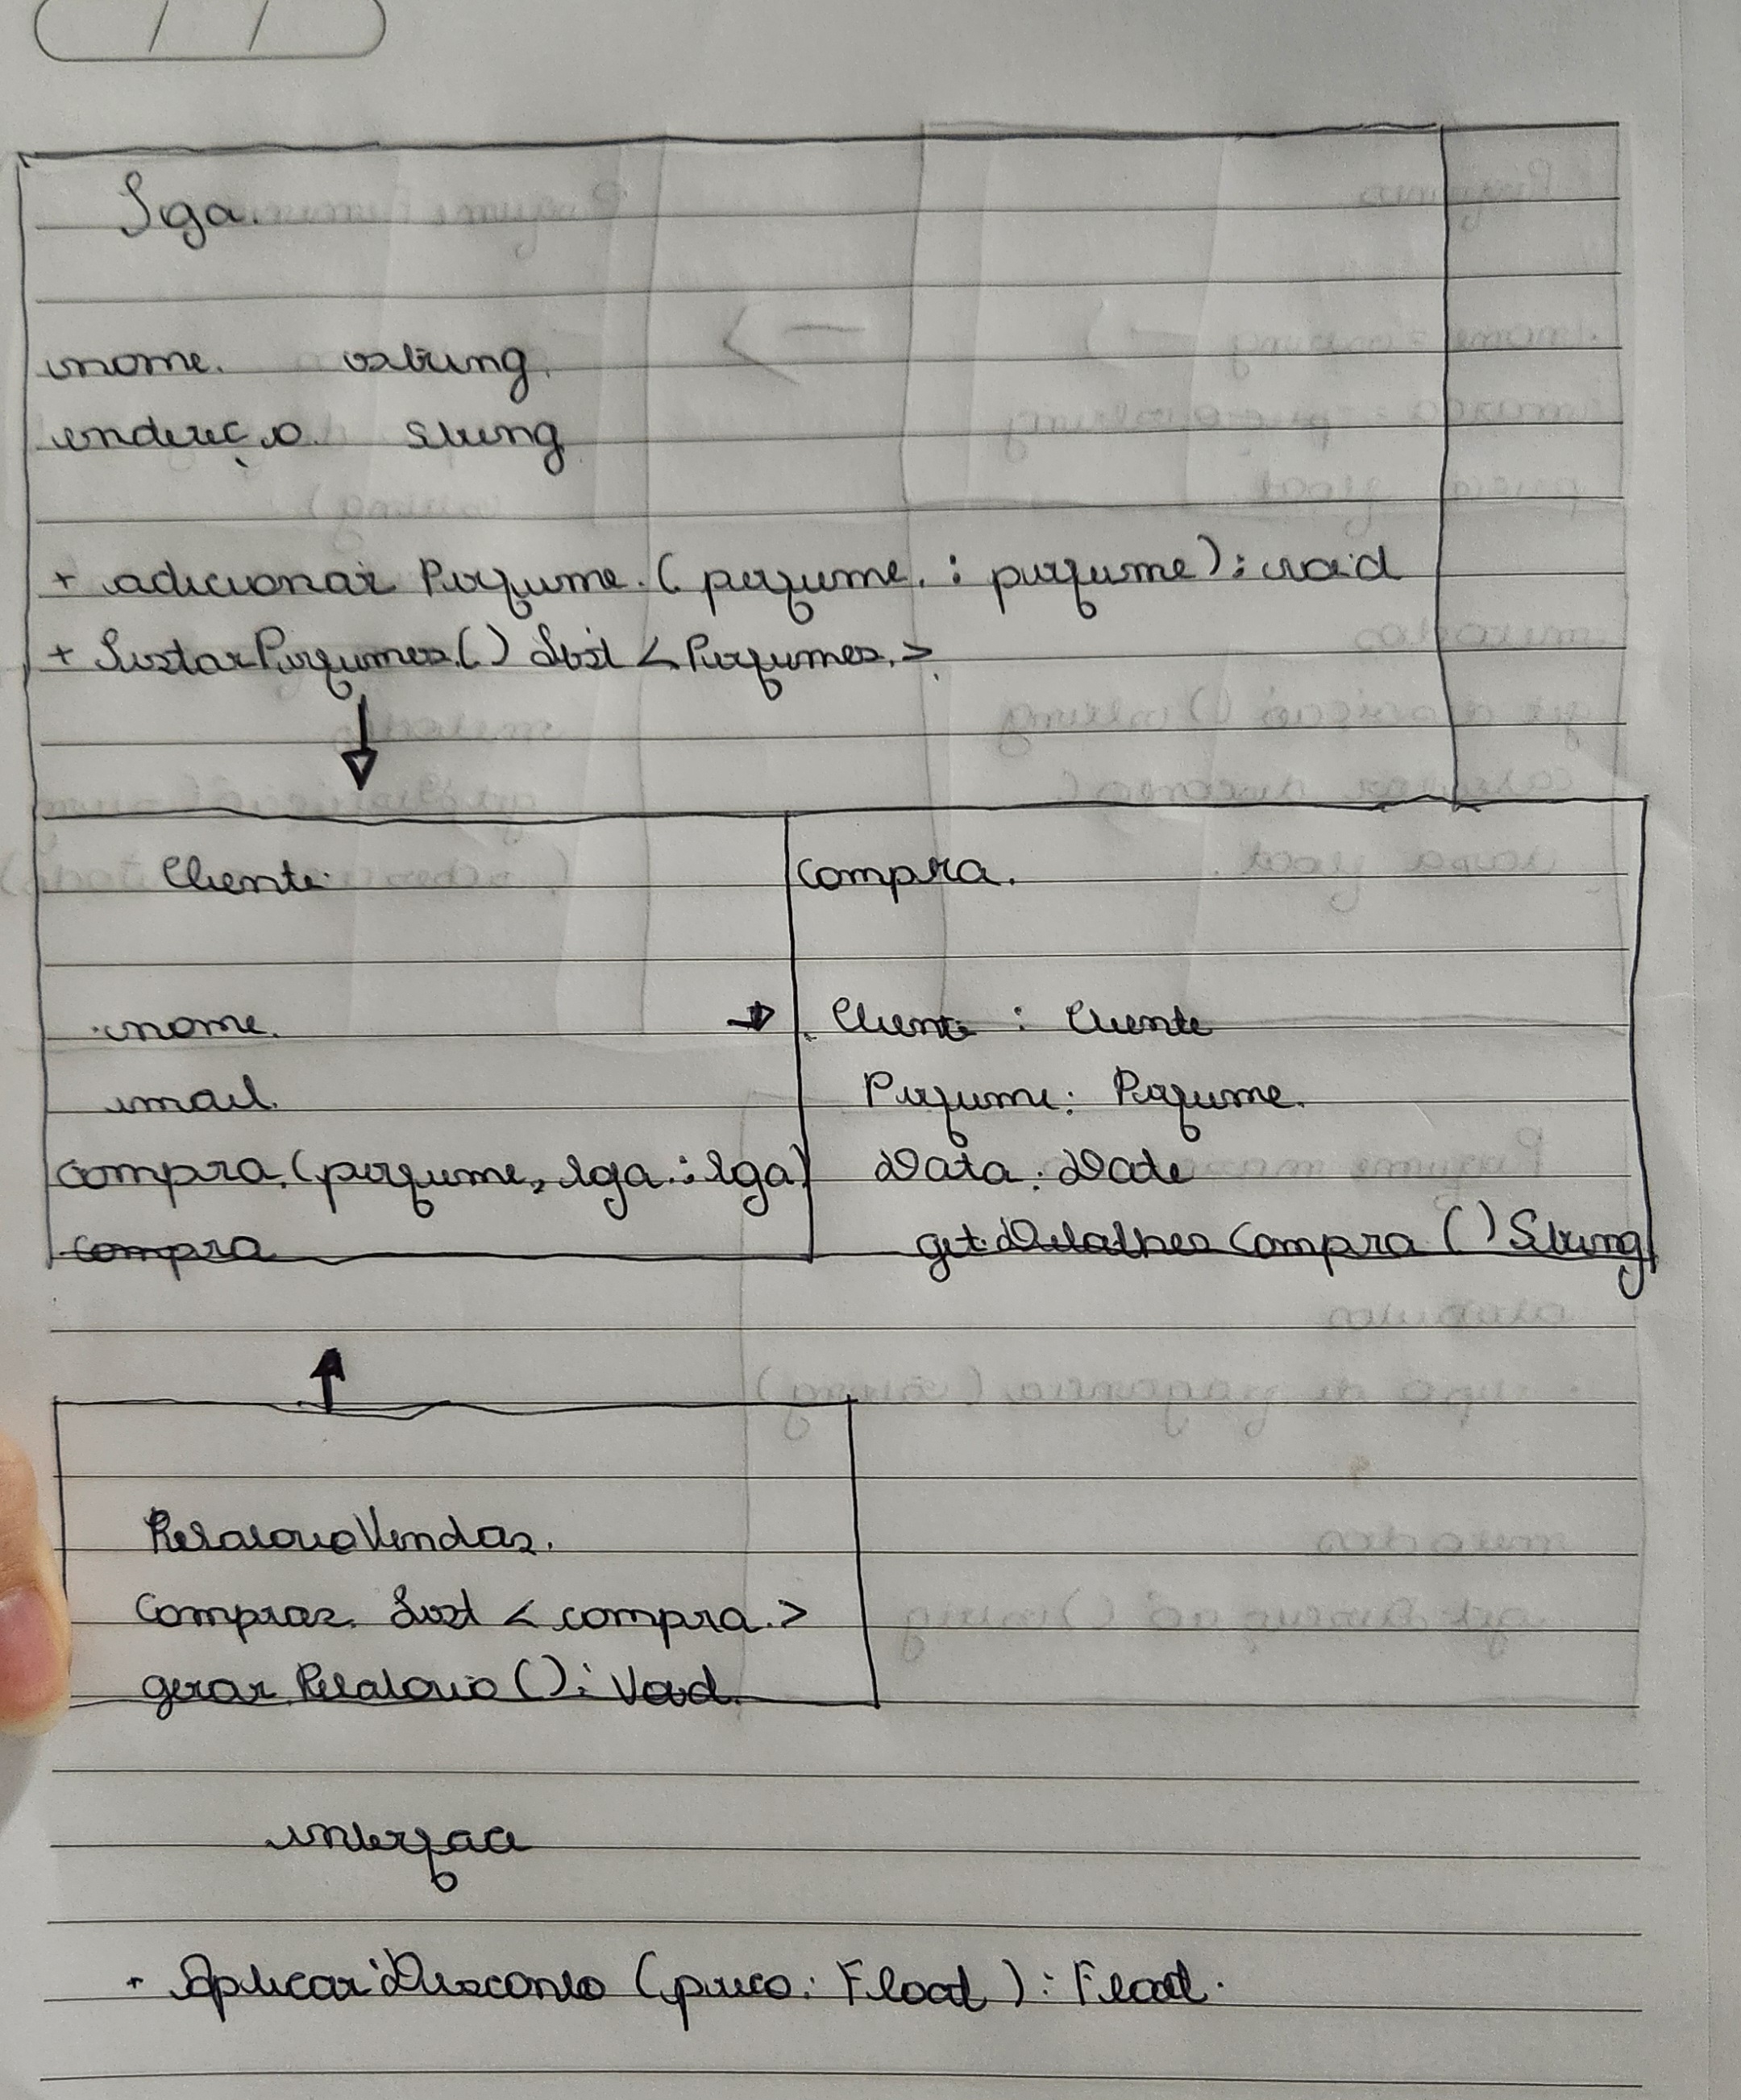 Loja.
nome. string.
endereço. string
+ adicionar Perfume. (perfume. : perfume) : void
+ ListarPerfumes.() List < Perfumes. >
Cliente.
nome.
email.
compra. (perfume, loja. : loja)
compra
compra.
Cliente : Cliente
Perfume : Perfume.
Data : Date
get Detalhes Compra () String
RelatorioVendas.
Compras. List < compra. >
gerar Relatorio () : Void.
interface
+ Aplicar Desconto (preco : Float) : Float.